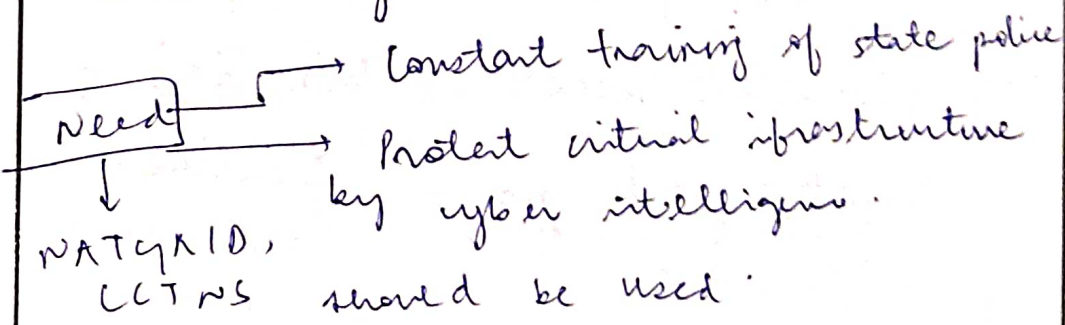 Constant training of state police
Need
Protect critical infrastructure
by cyber intelligence.
NATGRID,
CCTNS should be used.